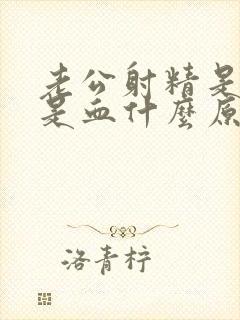 老公射精是
是血什麼原
洛青柠